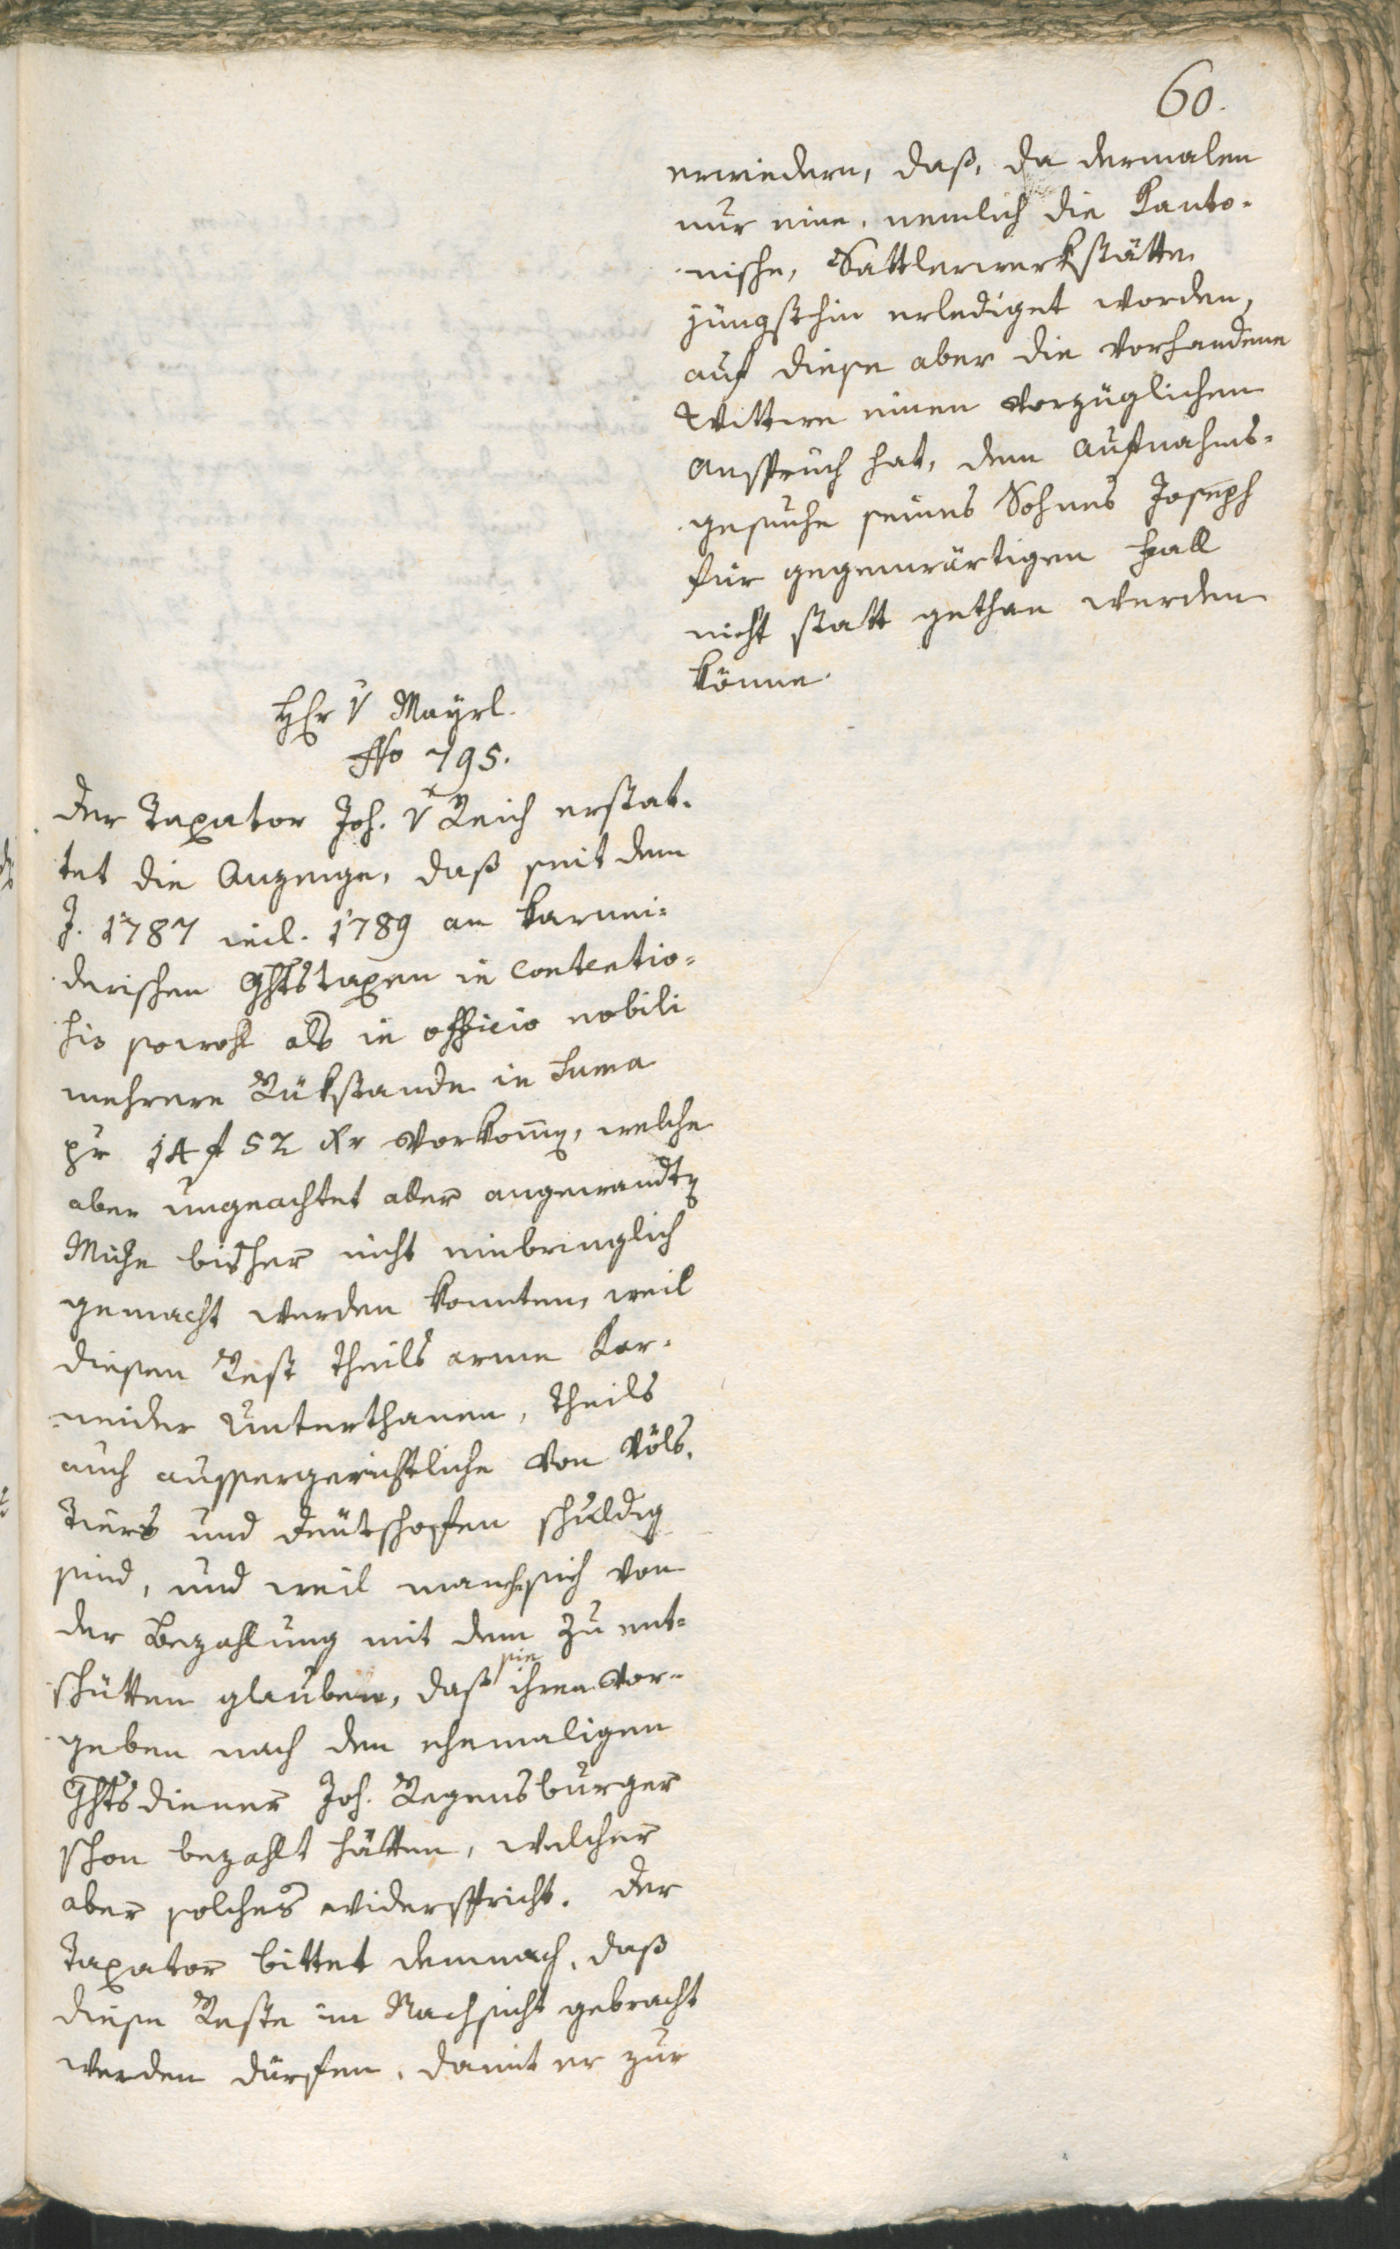 60.
erwiedern, daß, da dermalen
nur eine, nemlich die Kanto-
nische, Sattlerwerkstätte
jüngsthin erlediget worden,
auf diese aber die vorhandene
Wittwe einen vorzüglichen
Anspruch hat, dem Aufnahms-
gesuche seines Sohnes Joseph
für gegenwärtigen Fall
nicht statt gethan werden
könne.
HEr v Mayrl.
No 795.
Der Taxator Joh. v Reich erstat-
tet die Anzeige, daß seit dem
J. 1787 incl. 1789 an karnei-
derischen Ghtstaxen in contentio-
sis sowohl als in officio nobili
mehrere Rükstande in Suma
pr 14 f 52 xr vorkomen, welche
aber ungeachtet aller angewandten
Mühe bisher nicht einbringlich
gemacht werden konnten, weil
diesen Rest theils arme Kar-
neider Unterthanen, theils
auch aussergerichtliche von Völs,
Tiers und Deutschofen schuldig
sind, und weil manche sich von
der Bezahlung mit dem zu ent-
schütten glauben, daß sie ihren Vor-
geben nach den ehemaligen
Ghtsdiener Joh. Regensburger
schon bezahlt hätten, welcher
aber solches widerspricht. Der
Taxator bittet demnach, daß
diese Reste in Nachsicht gebracht
werden dürfen, damit er zur